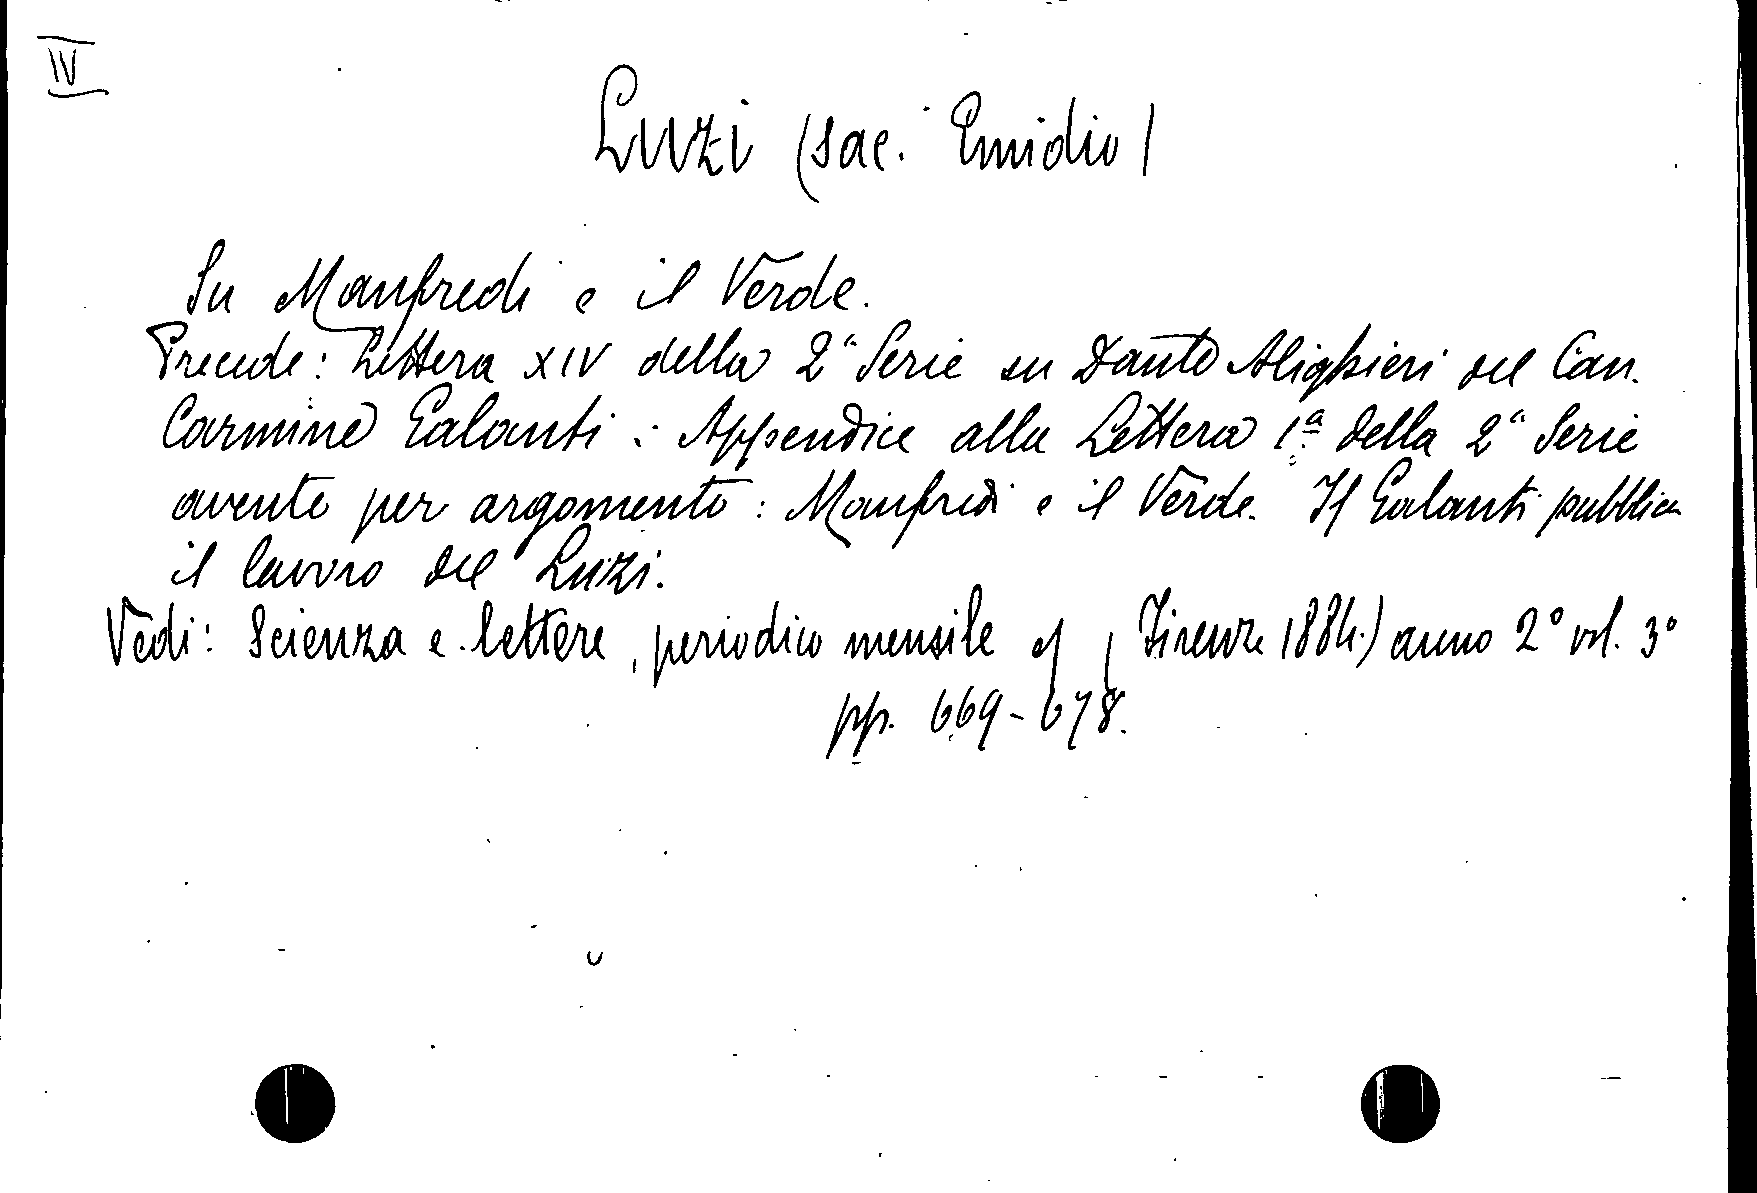 IV
Luzi (sac. Emidio)
Su Manfredi e il Verde.
Precede: Lettera XIV della 2ª Serie su Dante Alighieri del Can.
Carmine Galanti: Appendice alla Lettera 1ª della 2ª Serie
avente per argomento: Manfredi e il Verde. Il Galanti pubblica
il lavoro del Luzi.
Vedi: Scienza e lettere, periodico mensile (Firenze 1884.) anno 2° vol. 3°
pp. 669-678.